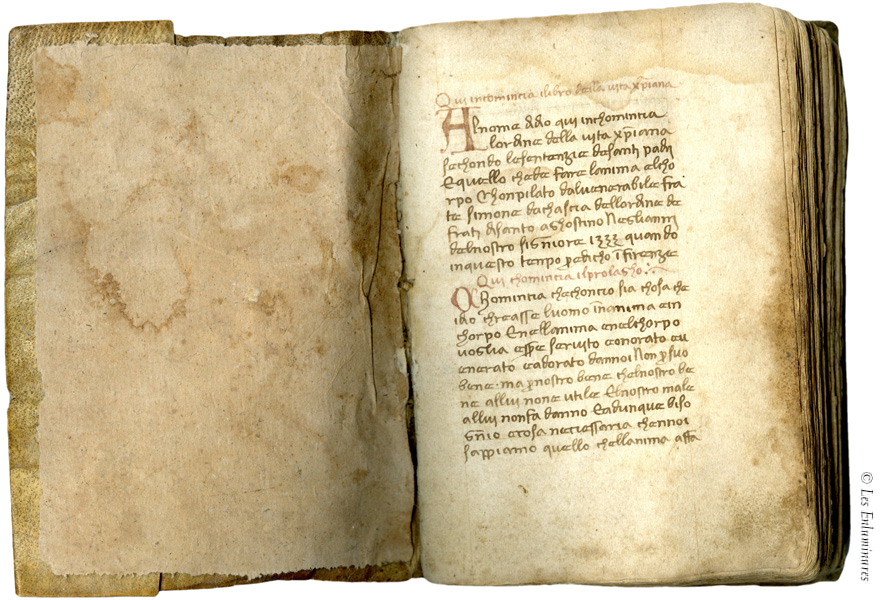 Qui incomincia ilibro della vita xp̄iana
Al nome didio qui inchomincia
lordine della vita xp̄iana
sechondo lesentenzie desanti padri
Equello chede fare lanima elcho
rpo Chonpilato dalvenerabile fra
te simone dachascia dellordine de
frati disanto aghostino Neglianni
delnostro singniore 1333 quando
inquesto tenpo p̱edicho ī firenze
Qui chomincia ilprolagho
Chomincia chechoncio sia chosa che
idio chreasse luomo īnanima ein
chorpo Enellanima enelchorpo
voglia esse servito eonorato eu
enerato eadorato dannoi Non p̱ suo
bene ma p̱ nostro bene chelnostro be
ne allui none utile Elnostro male
allui nonfa danno Eadunque biso
gnio ecosa necessaria chennoi
sappiamo quello chellanima affa
© Les Enluminures